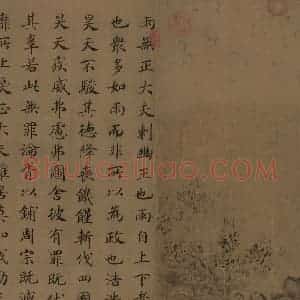 雨無正大夫刺幽王也雨自上下者
也衆多如雨而非所以為政也浩
昊天不駿其德降喪饑饉斬伐四國
旻天疾威弗慮弗圖舍彼有罪既伏
其辜若此無罪淪胥以鋪周宗既滅
靡所止戾正大夫離居莫知我勩